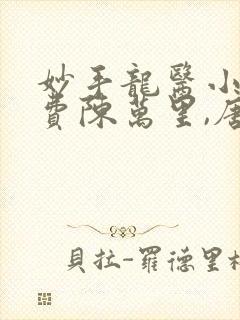 妙手龍醫小
費陳萬里,唐
貝拉-羅德里格